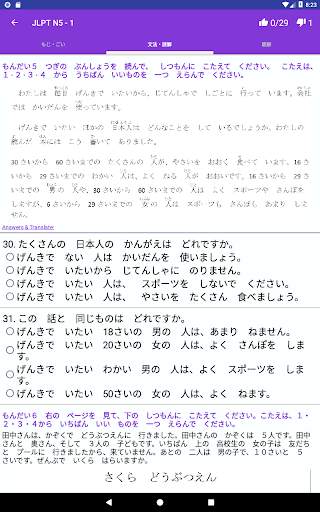 8:23
JLPT N5 - 1
0/29
1
もじ・ごい
文法・読解
聴解
もんだい５　つぎの　ぶんしょうを　読んで、　しつもんに　こたえて　ください。　こたえは、
１・２・３・４　から　うちばん　いいものを　一つ　えらんで　ください。
わたしは　毎日　げんきで　いたいから、じてんしゃで　しごとに　行って　います。会社
では　かいだんを　使っています。
げんきで　いたい　ほかの　日本人は　どんなことを　して　いるでしょうか。わたしの
読んだ　本には　こう　書いて　ありました。
30 さいから　60 さいまでの　たくさんの　人が、やさいを　おおく　食べて　います。16 さ
いから　29 さいまでの　わかい　人は、よく　ねる　人が　おおいです。16 さいから　29 さ
いまでの　男の　人や、30 さいから　60 さいまでの　人は　よく　スポーツや　さんぽを
しますが、6 さいから　29 さいまでの　女の　人は　スポーツも　さんぽも　あまり　しま
せん。
Answers & Translate
30. たくさんの　日本人の　かんがえは　どれですか。
げんきで　ない　人は　かいだんを　使いましょう。
げんきで　いたいから　じてんしゃに　のりません。
げんきで　いたい　人は、　スポーツを　しないで　ください。
げんきで　いたい　人は、　やさいを　たくさん　食べましょう。
31. この　話と　同じものは　どれですか。
げんきで　いたい　18さいの　男の　人は、あまり　ねません。
げんきで　いたい　20さいの　女の　人は、よく　さんぽを　しま
す。
げんきで　いたい　わかい　男の　人は、よく　スポーツを　しま
す。
げんきで　いたい　50さいの　女の　人は、よく　ねます。
もんだい６　右の　ページを　見て、下の　しつもんに　こたえて　ください。こたえは、１・
２・３・４から　いちばん　いい　ものを　一つ　えらんで　ください。
田中さんは、かぞくで　どうぶつえんに　行きました。田中さんの　かぞくは　５人です。田中
さんと　奥さん、そして　３人の　子どもです。いちばん　上の　高校生の　女の子は　友だち
と　プールに　行きましたから、来ていません。あとの　二人は　男の子で、１０さいと　５
さいです。ぜんぶで　いくら　はらいますか。
さくら　どうぶつえん